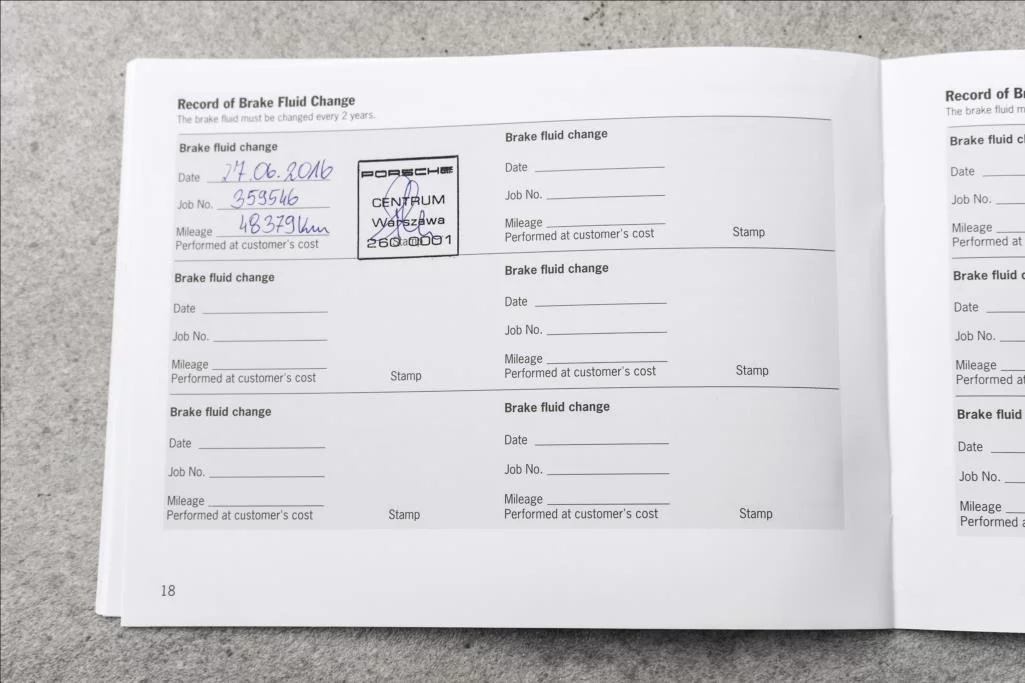 Record of Brake Fluid Change
The brake fluid must be changed every 2 years.
Brake fluid change
Date 27.06.2016
Job No. 359546
Mileage 48379km
Performed at customer's cost
PORSCHE
CENTRUM
Warszawa
260 0001
Brake fluid change
Date
Job No.
Mileage
Performed at customer's cost Stamp
Brake fluid change
Date
Job No.
Mileage
Performed at customer's cost Stamp
Brake fluid change
Date
Job No.
Mileage
Performed at customer's cost Stamp
Brake fluid change
Date
Job No.
Mileage
Performed at customer's cost Stamp
Brake fluid change
Date
Job No.
Mileage
Performed at customer's cost Stamp
18
Record of B
The brake fluid m
Brake fluid c
Date
Job No.
Mileage
Performed at
Brake fluid c
Date
Job No.
Mileage
Performed at
Brake fluid
Date
Job No.
Mileage
Performed a